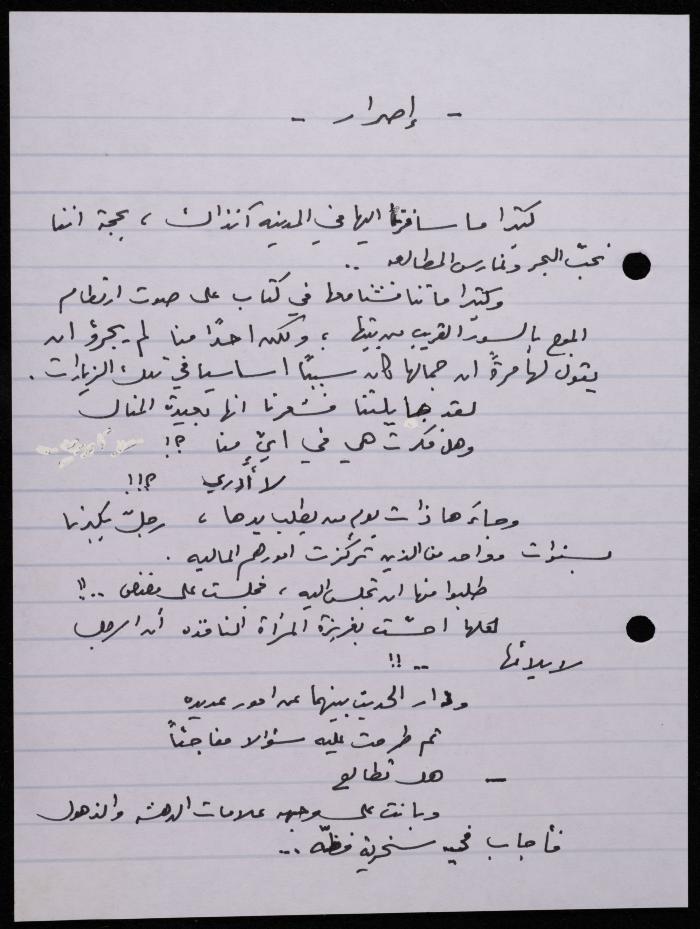 - إصرار -
كثيرا ما سافرنا اليها في المدينه آنذاك ، بحجة اننا
نحبّ البحر ونمارس المطالعه ..
وكثيرا ما تنافشنا معها في كتاب على صوت ارتطام
الموج بالسور القريب من بيتها ، ولكن احدًا منا لم يجرؤ ان
يقول لها مرةً ان جمالها كان سببًا اساسيا في تلك الزيارات .
لقد جايلتنا فشعرنا انها بعيدة المنال
وهل فكرت هي في ايٍّ منا ؟!
لا أدري ؟!!
وجاءها ذات يوم من يطلب يدها ، رجلٌ يكبرنا
بسنوات وواحد من الذين تمركزت امورهم الماليه .
طلبوا منها ان تجلس اليه ، فجلست على مضض ..!!
لعلها احسّت بغريزة المرأة النافذه أن الرجل
لا يلائمها .. !!
ودار الحديث بينهما عن امور عديده
ثم طرحت عليه سؤالا مفاجئاً
- هل تطالع
وبانت على وجهه علامات الدهشه والذهول
فأجاب في سخرية فظّه ...